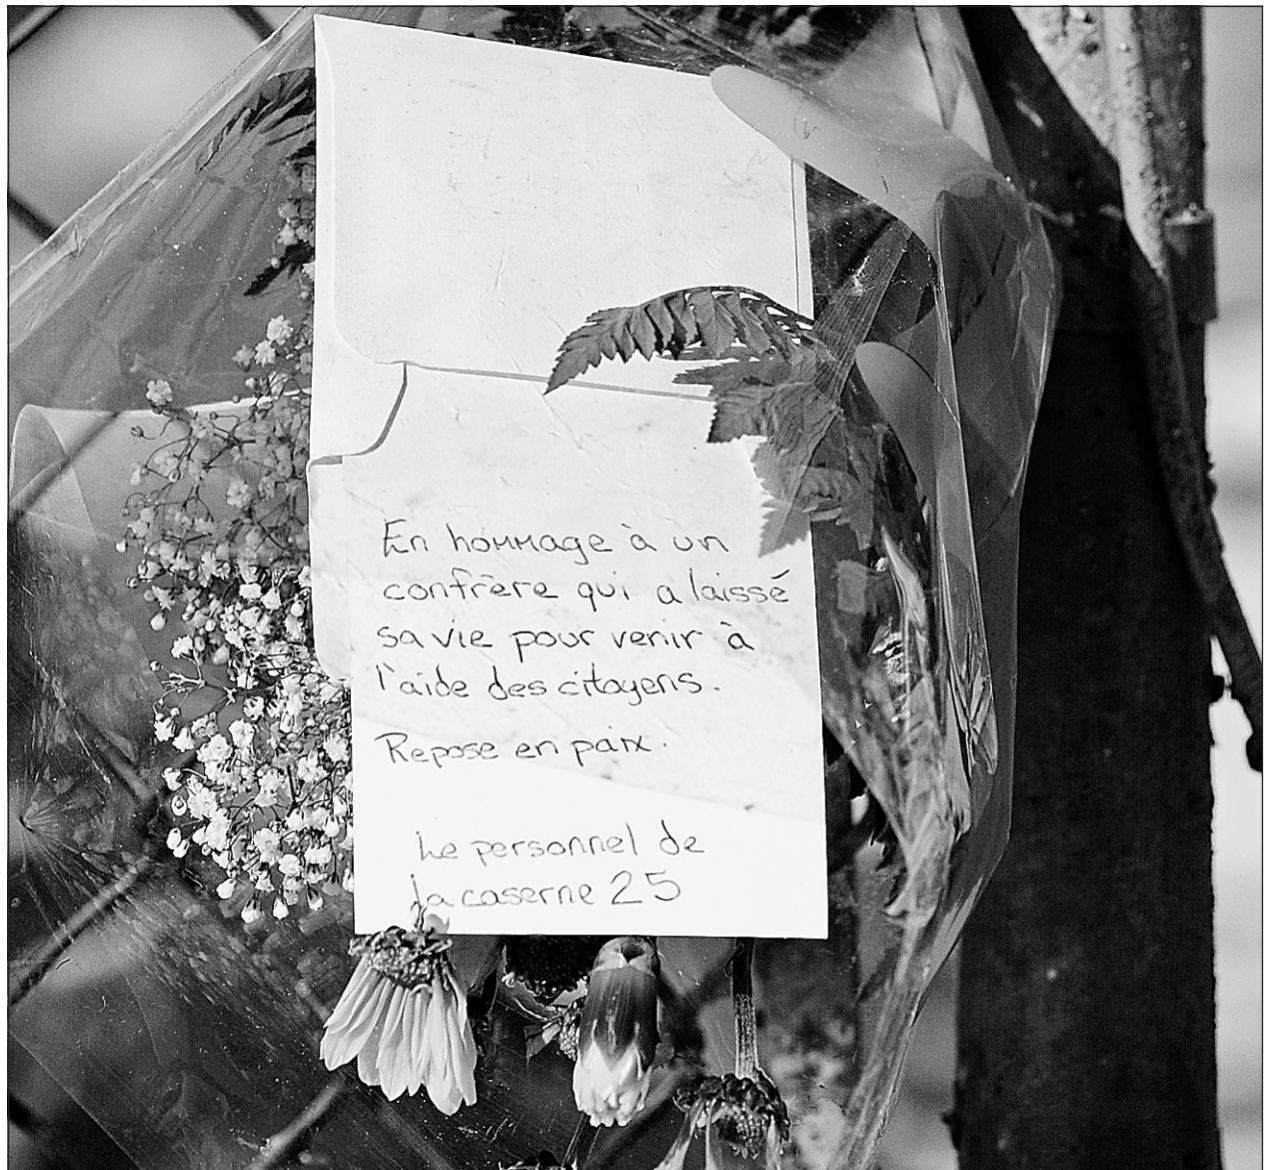 En hommage à un
confrère qui a laissé
sa vie pour venir à
l'aide des citoyens.
Repose en paix.
Le personnel de
la caserne 25